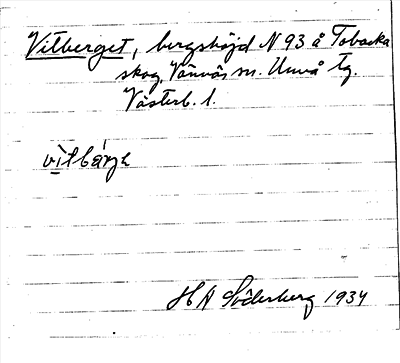 Vitberget, bergshöjd N 93 å Tobacka
skog, Vännäs sn. Umeå tg.
Västerb. l.
vìtbárjɛ
H A Söderberg 1934